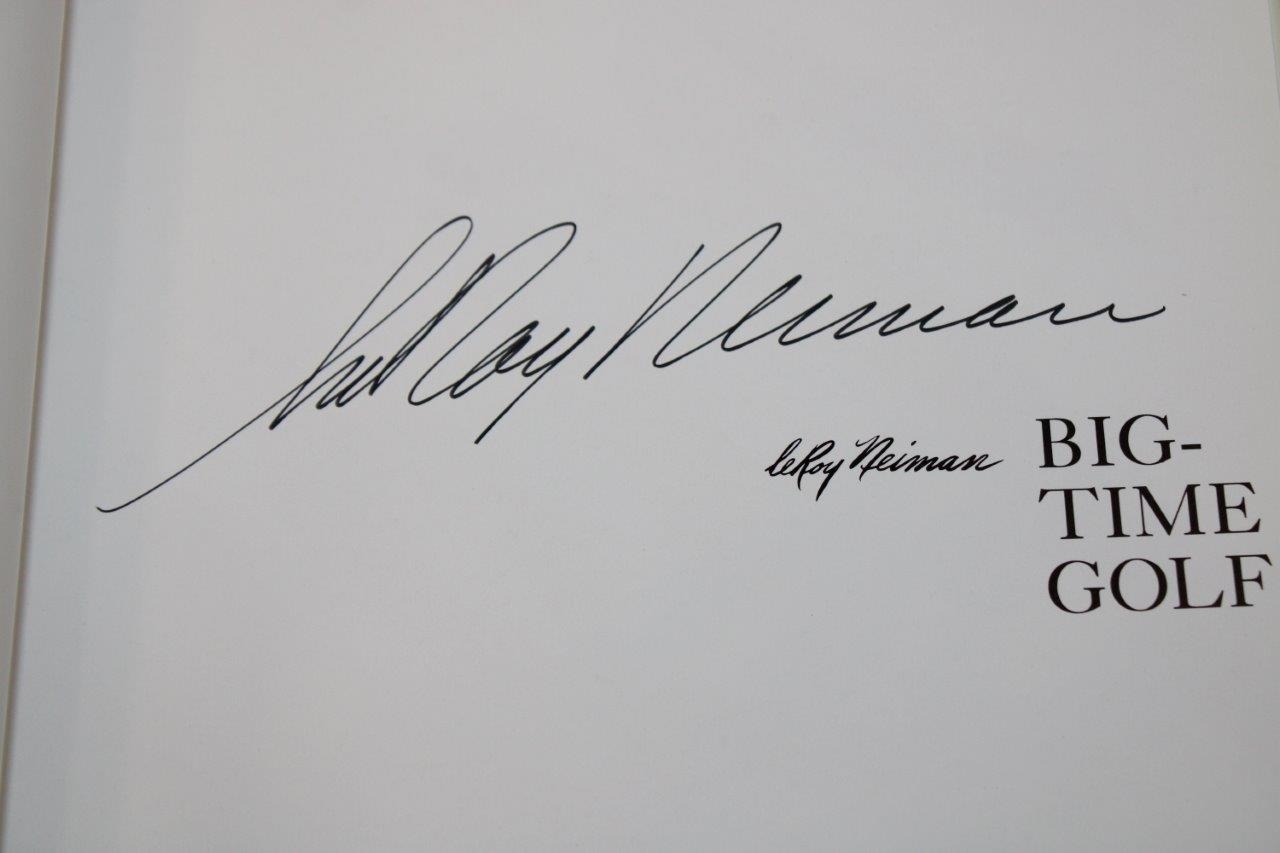 LeRoy Neiman
leRoy Neiman
BIG-
TIME
GOLF